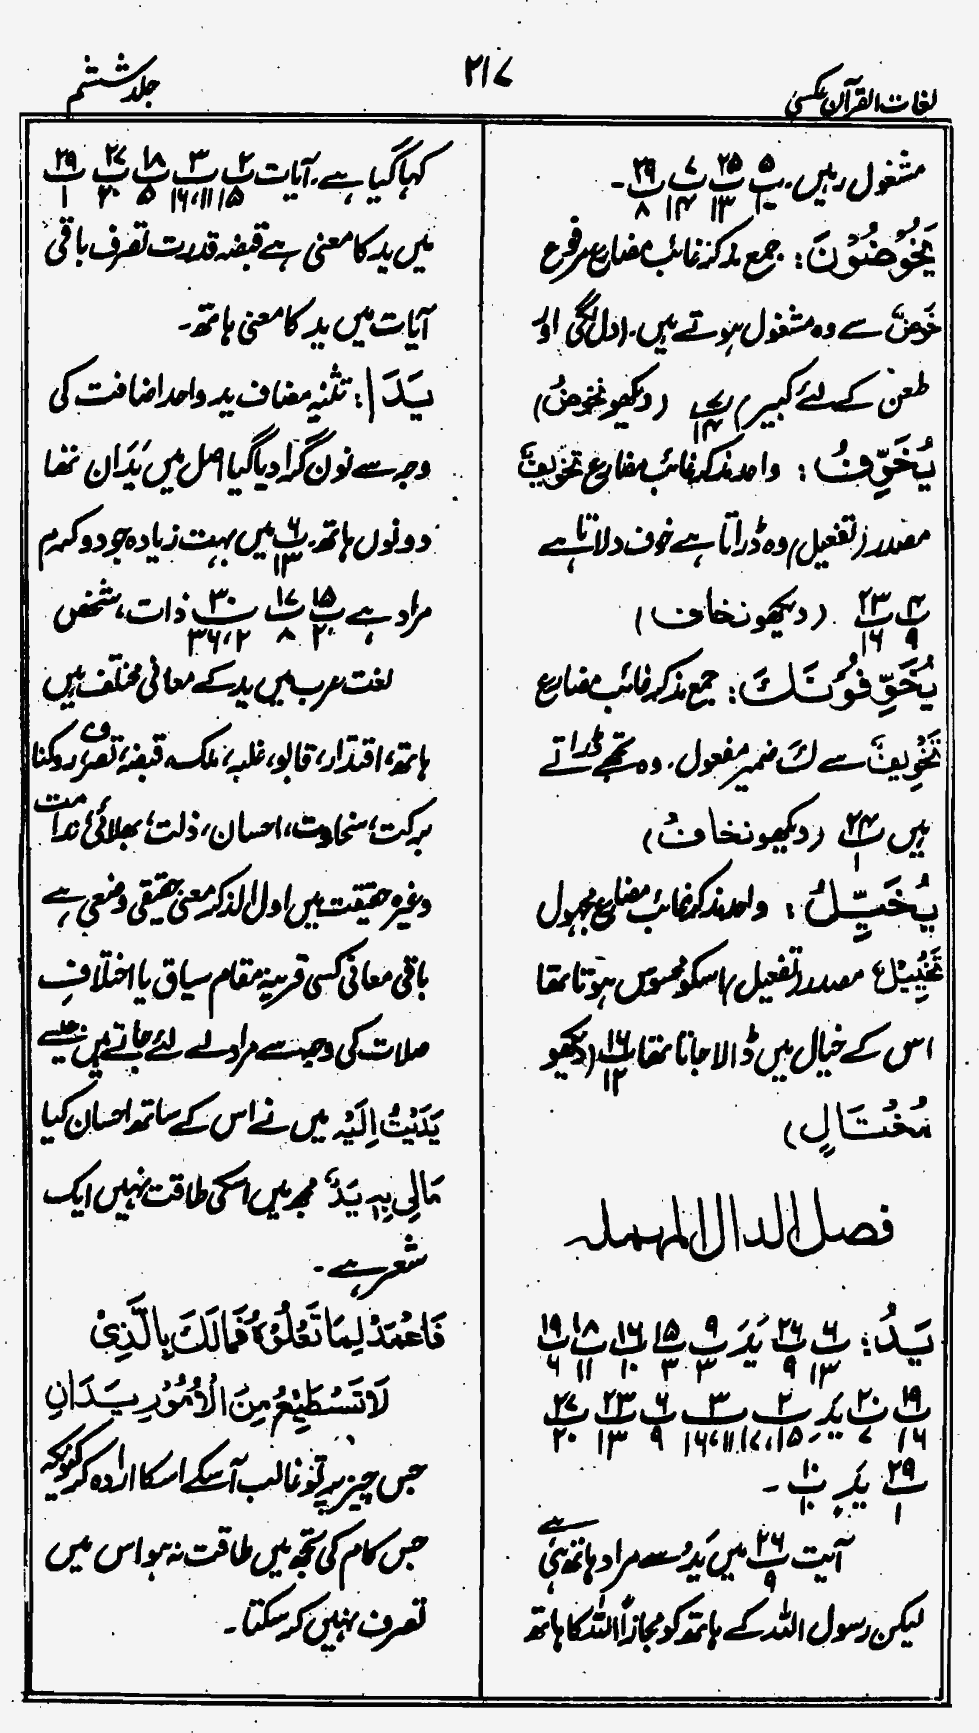 لغات القرآن عکسی
۲۱۷
جلد ششم
مشغول رہیں۔ پ۵/۱۰ پ۲۵/۱۳ پ۷/۱۴ پ۲۹/۸۔
یَخُوْضُوْنَ: جمع مذکر غائب مضارع مرفوع
خَوْضٌ سے وہ مشغول ہوتے ہیں۔ (دل لگی اور
طعن کے لئے کبیر) پ۷/۱۴ (دیکھو نَخُوْضُ)
یُخَوِّفُ: واحد مذکر غائب مضارع تخویفٌ
مصدر (تفعیل) وہ ڈراتا ہے خوف دلاتا ہے
پ۴/۹ پ۲۳/۱۶ (دیکھو نخاف)
یُخَوِّفُوْنَكَ: جمع مذکر غائب مضارع
تَخْوِیفٌ سے كَ ضمیر مفعول۔ وہ تجھے ڈراتے
ہیں پ۲۴/۱ (دیکھو نخافُ)
یُخَیَّلُ: واحد مذکر غائب مضارع مجہول
تَخْیِیْلٌ مصدر (تفعیل) اسکو محسوس ہوتا تھا
اس کے خیال میں ڈالا جاتا تھا پ۱۶/۱۲ (دیکھو
مُخْتَالٍ)
فصل الدال المهملہ
یَدُ: پ۶/۱۳ پ۲۶/۹ یَدَ پ۹/۳ پ۱۵/۳ پ۱۶/۱۰ پ۱۸/۱۱ پ۱۹/۶
پ۱۹/۱۶ پ۲۰/۷ یَدِ پ۲/۱۵، ۱۷ پ۳/۱۱، ۱۶ پ۶/۹ پ۲۳/۱۳ پ۲۷/۲۰
پ۲۹/۱ یَدٍ پ۱۰/۱۰۔
آیت پ۲۶/۹ میں یَدُ سے مراد ہاتھ ہی ہے
لیکن رسول اللہ کے ہاتھ کو مجازاً اللہ کا ہاتھ
کہا گیا ہے۔ آیات پ۲/۱۵ پ۳/۱۱، ۱۶ پ۱۸/۵ پ۲۷/۲۰ پ۲۹/۱
میں ید کا معنی ہے قبضہ قدرت تصرف باقی
آیات میں ید کا معنی ہاتھ۔
یَدَا: تثنیہ مضاف ید واحد اضافت کی
وجہ سے نون گرا دیا گیا اصل میں یَدَان تھا
دونوں ہاتھ۔ پ۶/۱۳ میں بہت زیادہ جود و کرم
مراد ہے پ۱۵/۲۰ پ۱۷/۸ پ۳۰/۲، ۳۶ ذات، شخص
لغت عرب میں ید کے معانی مختلف ہیں
ہاتھ، اقتدار، قابو، غلبہ، ملک، قبضہ، تصرف، روکنا
برکت، سخاوت، احسان، ذلت، بھلائی، ندامت
وغیرہ حقیقت میں اول الذکر معنی حقیقی وضعی ہے
باقی معانی کسی قرینہ مقام سیاق یا اختلافِ
صلات کی وجہ سے مراد لے لئے جاتے ہیں جیسے
یَدَیْتُ اِلَیْہِ میں نے اس کے ساتھ احسان کیا
مَالِی بِہٖ یَدٌ مجھ میں اسکی طاقت نہیں ایک
شعر ہے۔
فَاعْمَدْ لِمَا تَعْلُوْ فَمَالَكَ بِالَّذِیْ
لَا تَسْتَطِیْعُ مِنَ الْاُمُوْرِ یَدَانِ
جس چیز پر تو غالب آسکے اسکا ارادہ کر کیونکہ
جس کام کی تجھ میں طاقت نہ ہو اس میں
تصرف نہیں کر سکتا۔